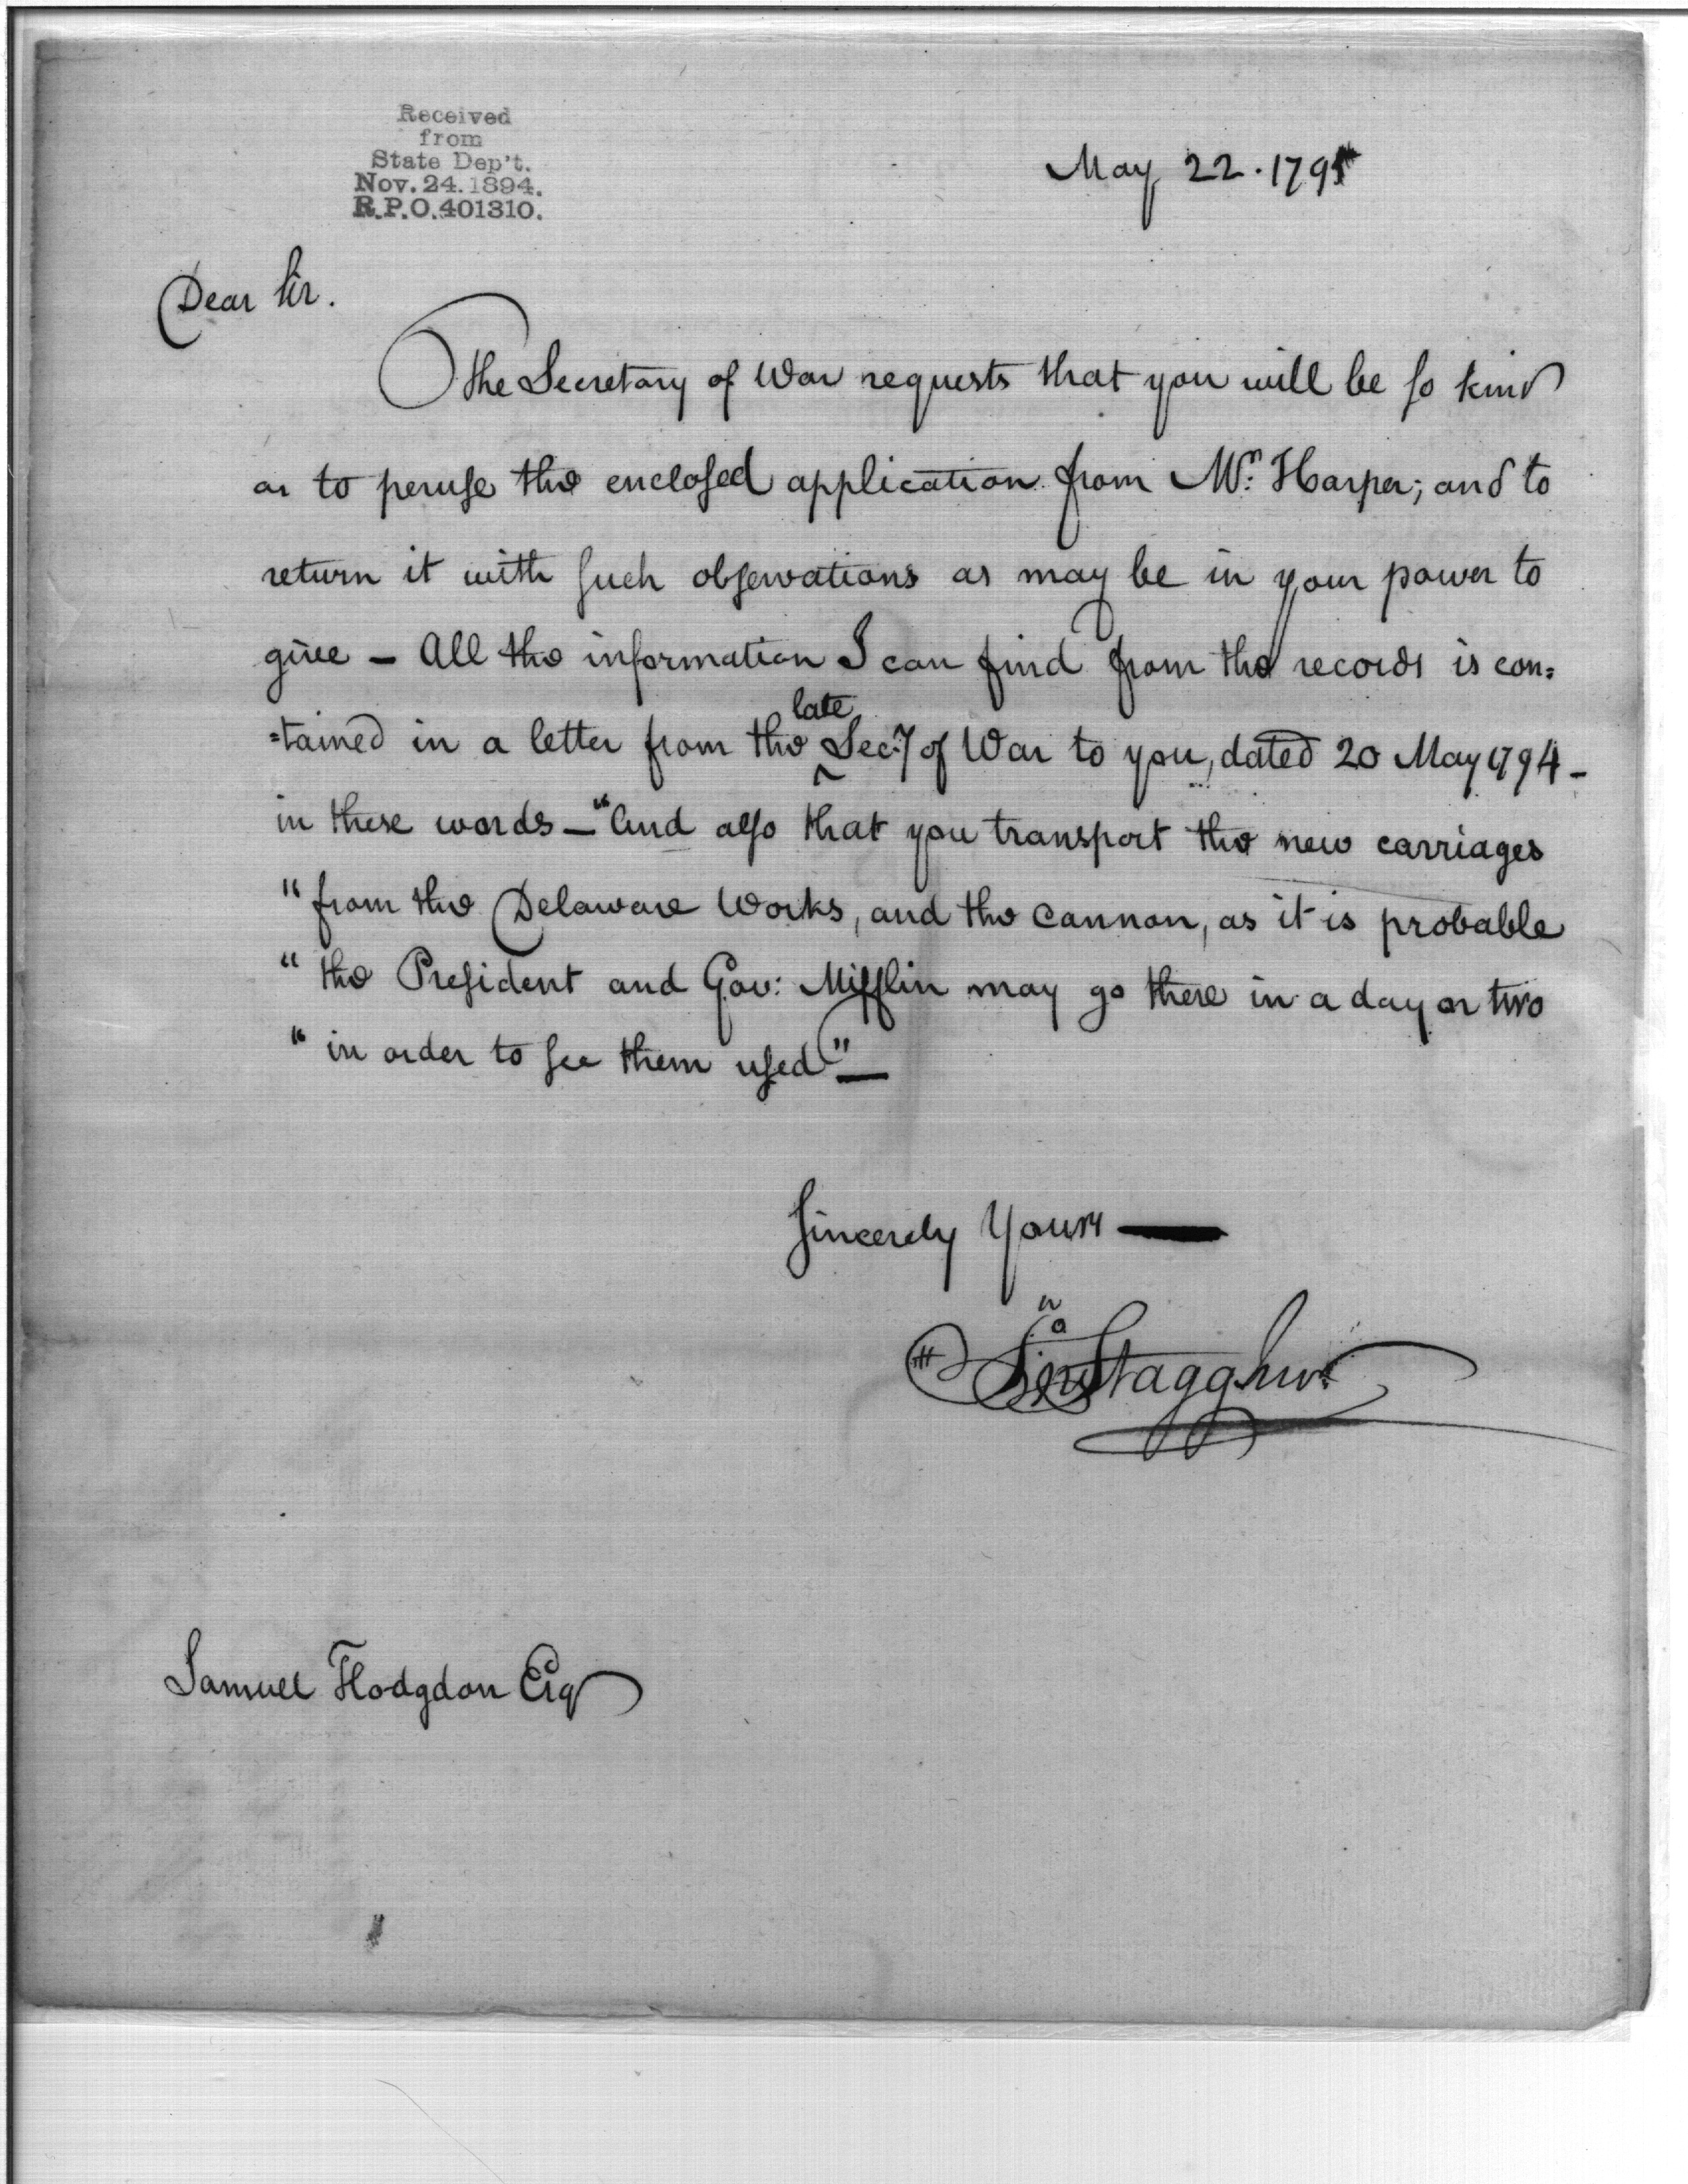 Received
from
State Dep't.
Nov. 24. 1894.
R.P.O. 401310.
May 22. 1795
Dear Sir.
The Secretary of War requests that you will be so kind
as to peruse the enclosed application from Mr. Harper; and to
return it with such observations as may be in your power to
give – All the information I can find from the records is con=
=tained in a letter from the late Secy of War to you, dated 20 May 1794 –
in these words – "And also that you transport the new carriages
"from the Delaware Works, and the cannon, as it is probable
"the President and Gov: Mifflin may go there in a day or two
"in order to see them used" –
Sincerely Yours —
Jno Stagg Junr
Samuel Hodgdon Esq